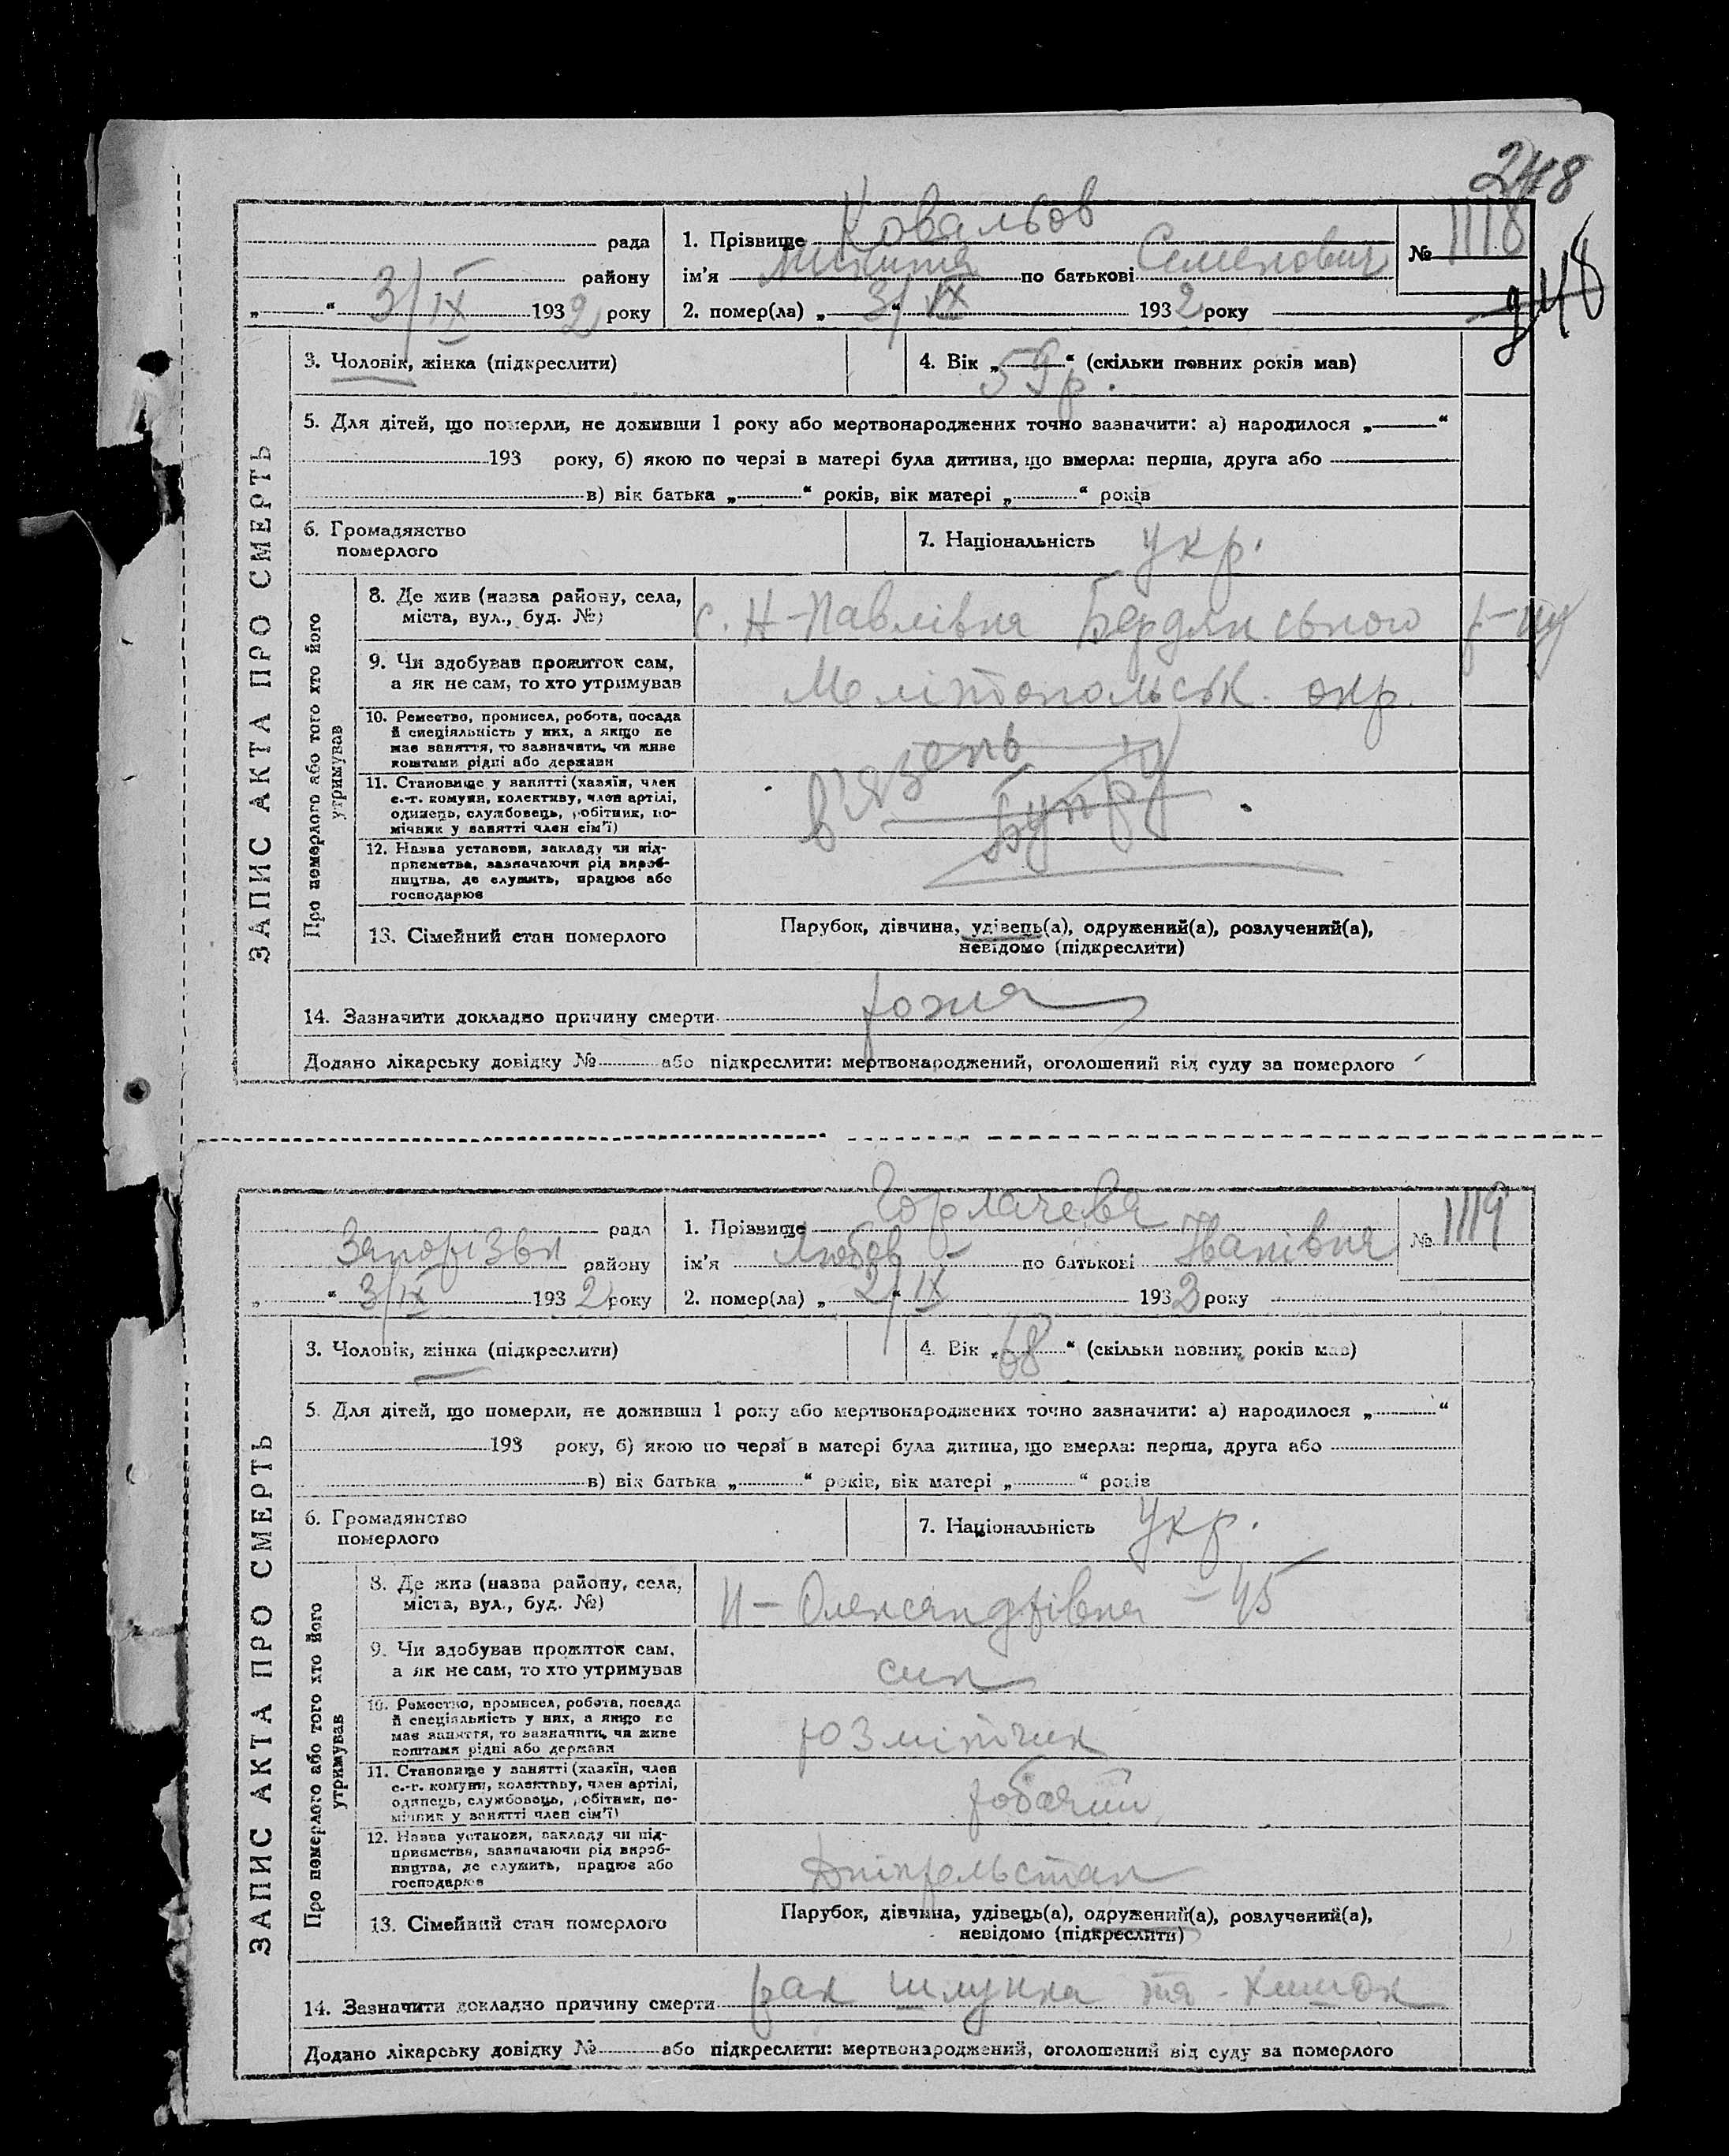 248
248
ЗАПИС АКТА ПРО СМЕРТЬ
рада
району
„ “ 3/IX 1932 року
1. Прізвище Ковальов
ім’я Микита по батькові Семенович
2. помер(ла) „ 3/IX “ 1932 року
№ 1118
3. Чоловік, жінка (підкреслити)
4. Вік „ 59 р. “ (скільки повних років мав)
5. Для дітей, що померли, не доживши 1 року або мертвонароджених точно зазначити: а) народилося „ “
193 року, б) якою по черзі в матері була дитина, що вмерла: перша, друга або
в) вік батька „ “ років, вік матері „ “ років
6. Громадянство померлого
7. Національність укр.
Про померлого або того хто його утримував
8. Де жив (назва району, села, міста, вул., буд. №)
с. Н-Павлівка Бердянського р-ну
9. Чи здобував прожиток сам, а як не сам, то хто утримував
Мелітопольськ. окр.
10. Ремество, промисел, робота, посада й спеціяльність у них, а якщо не має заняття, то зазначити, чи живе коштами рідні або держави
в'язень
11. Становище у занятті (хазяїн, член с.-г. комуни, колективу, член артілі, одинець, службовець, робітник, помічник у занятті член сім’ї)
Бупру
12. Назва установи, закладу чи підприємства, зазначаючи рід виробництва, де служить, працює або господарює
13. Сімейний стан померлого
Парубок, дівчина, удівець(а), одружений(а), розлучений(а),
невідомо (підкреслити)
14. Зазначити докладно причину смерти рожа
Додано лікарську довідку № або підкреслити: мертвонароджений, оголошений від суду за померлого
ЗАПИС АКТА ПРО СМЕРТЬ
рада
району
„ “ 3/IX 1932 року
1. Прізвище Горлачева
ім’я Любов по батькові Іванівна
2. помер(ла) „ 2/IX “ 1932 року
№ 1119
3. Чоловік, жінка (підкреслити)
4. Вік „ 68 “ (скільки повних років мав)
5. Для дітей, що померли, не доживши 1 року або мертвонароджених точно зазначити: а) народилося „ “
193 року, б) якою по черзі в матері була дитина, що вмерла: перша, друга або
в) вік батька „ “ років, вік матері „ “ років
6. Громадянство померлого
7. Національність Укр.
Про померлого або того хто його утримував
8. Де жив (назва району, села, міста, вул., буд. №)
Н-Олександрівка - 45
9. Чи здобував прожиток сам, а як не сам, то хто утримував
син
10. Ремество, промисел, робота, посада й спеціяльність у них, а якщо не має заняття, то зазначити, чи живе коштами рідні або держави
розмітчик
11. Становище у занятті (хазяїн, член с.-г. комуни, колективу, член артілі, одинець, службовець, робітник, помічник у занятті член сім’ї)
12. Назва установи, закладу чи підприємства, зазначаючи рід виробництва, де служить, працює або господарює
Дніпрельстан
13. Сімейний стан померлого
Парубок, дівчина, удівець(а), одружений(а), розлучений(а),
невідомо (підкреслити)
14. Зазначити докладно причину смерти рак шлунка та - кишок
Додано лікарську довідку № або підкреслити: мертвонароджений, оголошений від суду за померлого